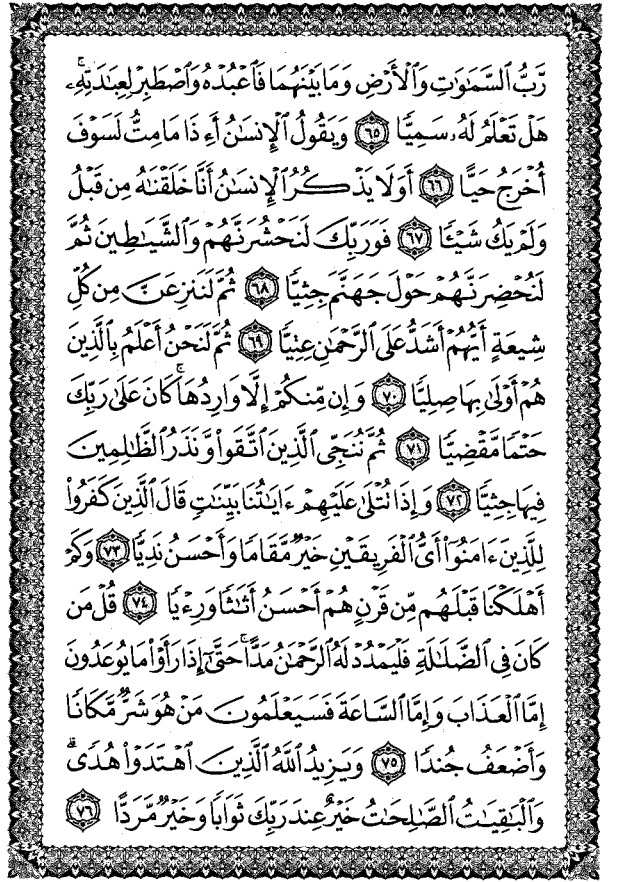 رَّبُّ ٱلسَّمَٰوَٰتِ وَٱلۡأَرۡضِ وَمَا بَيۡنَهُمَا فَٱعۡبُدۡهُ وَٱصۡطَبِرۡ لِعِبَٰدَتِهِۦۚ
هَلۡ تَعۡلَمُ لَهُۥ سَمِيّٗا ٦٥ وَيَقُولُ ٱلۡإِنسَٰنُ أَءِذَا مَا مِتُّ لَسَوۡفَ
أُخۡرَجُ حَيًّا ٦٦ أَوَلَا يَذۡكُرُ ٱلۡإِنسَٰنُ أَنَّا خَلَقۡنَٰهُ مِن قَبۡلُ
وَلَمۡ يَكُ شَيۡـٔٗا ٦٧ فَوَرَبِّكَ لَنَحۡشُرَنَّهُمۡ وَٱلشَّيَٰطِينَ ثُمَّ
لَنُحۡضِرَنَّهُمۡ حَوۡلَ جَهَنَّمَ جِثِيّٗا ٦٨ ثُمَّ لَنَنزِعَنَّ مِن كُلِّ
شِيعَةٍ أَيُّهُمۡ أَشَدُّ عَلَى ٱلرَّحۡمَٰنِ عِتِيّٗا ٦٩ ثُمَّ لَنَحۡنُ أَعۡلَمُ بِٱلَّذِينَ
هُمۡ أَوۡلَىٰ بِهَا صِلِيّٗا ٧٠ وَإِن مِّنكُمۡ إِلَّا وَارِدُهَاۚ كَانَ عَلَىٰ رَبِّكَ
حَتۡمٗا مَّقۡضِيّٗا ٧١ ثُمَّ نُنَجِّي ٱلَّذِينَ ٱتَّقَواْ وَّنَذَرُ ٱلظَّٰلِمِينَ
فِيهَا جِثِيّٗا ٧٢ وَإِذَا تُتۡلَىٰ عَلَيۡهِمۡ ءَايَٰتُنَا بَيِّنَٰتٖ قَالَ ٱلَّذِينَ كَفَرُواْ
لِلَّذِينَ ءَامَنُوٓاْ أَيُّ ٱلۡفَرِيقَيۡنِ خَيۡرٞ مَّقَامٗا وَأَحۡسَنُ نَدِيّٗا ٧٣ وَكَمۡ
أَهۡلَكۡنَا قَبۡلَهُم مِّن قَرۡنٍ هُمۡ أَحۡسَنُ أَثَٰثٗا وَرِءۡيٗا ٧٤ قُلۡ مَن
كَانَ فِي ٱلضَّلَٰلَةِ فَلۡيَمۡدُدۡ لَهُ ٱلرَّحۡمَٰنُ مَدًّاۚ حَتَّىٰٓ إِذَا رَأَوۡاْ مَا يُوعَدُونَ
إِمَّا ٱلۡعَذَابَ وَإِمَّا ٱلسَّاعَةَ فَسَيَعۡلَمُونَ مَنۡ هُوَ شَرّٞ مَّكَانٗا
وَأَضۡعَفُ جُندٗا ٧٥ وَيَزِيدُ ٱللَّهُ ٱلَّذِينَ ٱهۡتَدَوۡاْ هُدٗىۗ
وَٱلۡبَٰقِيَٰتُ ٱلصَّٰلِحَٰتُ خَيۡرٌ عِندَ رَبِّكَ ثَوَابٗا وَخَيۡرٞ مَّرَدًّا ٧٦